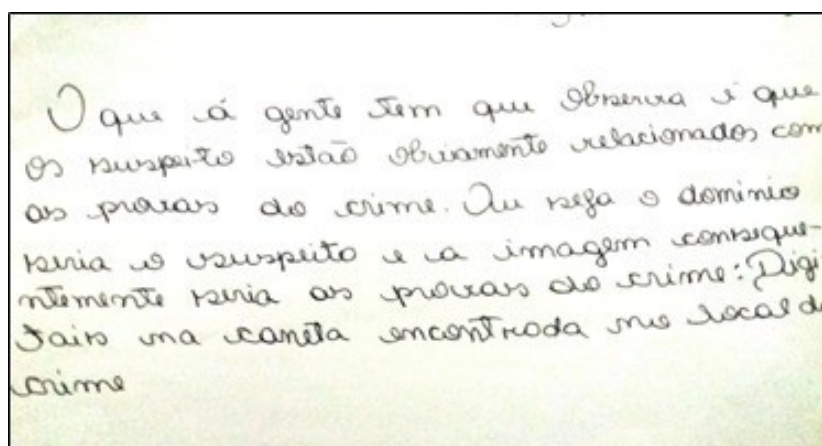 O que á gente tem que observa é que
os suspeito estão obviamente relacionados com
as provas do crime. Ou seja o dominio
seria o suspeito e a imagem conseque-
ntemente seria as provas do crime: Digi
tais na caneta encontrada no local do
crime